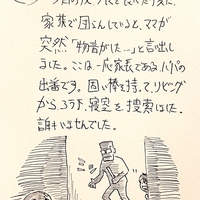 家族で団らんしていると、ママが
突然「物音がした…」と言い出し
ました。ここは一応家長であるパパの
出番です。固い棒を持って、リビング
から、ろうか、寝室を捜索しました。
誰もいませんでした。